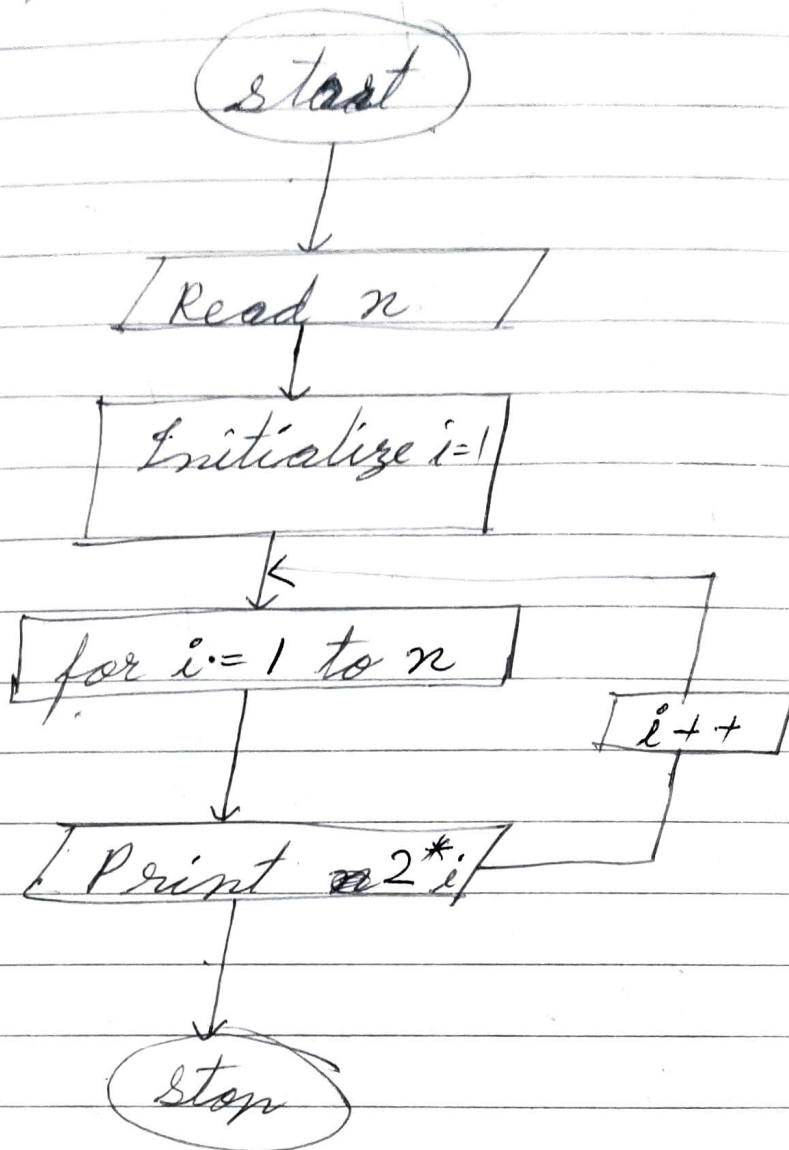 start
Read n
Initialize i=1
for i = 1 to n
i++
Print 2*i
stop